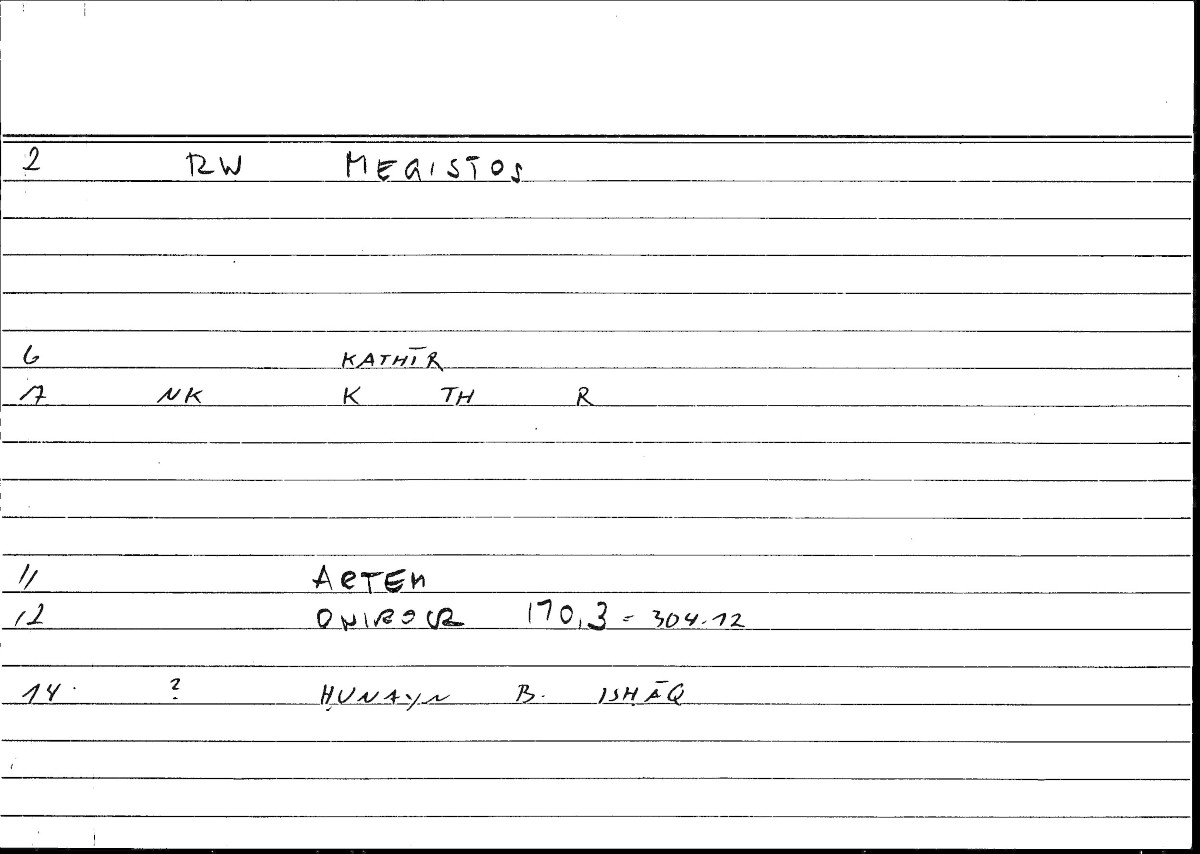 2 RW MEGISTOS
6 KATHĪR
7 NK K TH R
11 ARTEM
12 ONIROCR 170,3 = 304.12
14 ? ḤUNAYN B. ISḤĀQ